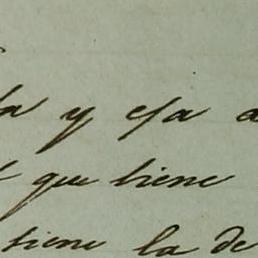 la y esa a
que tiene
tiene la de